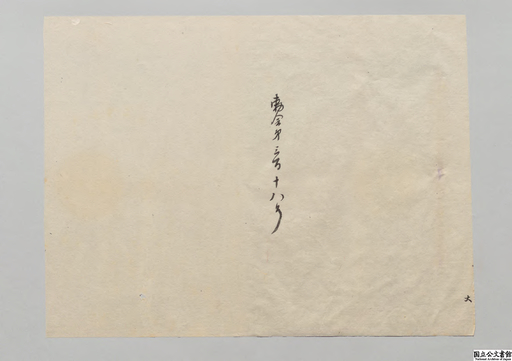 勅令第三百十八号
大
国立公文書館
National Archives of Japan